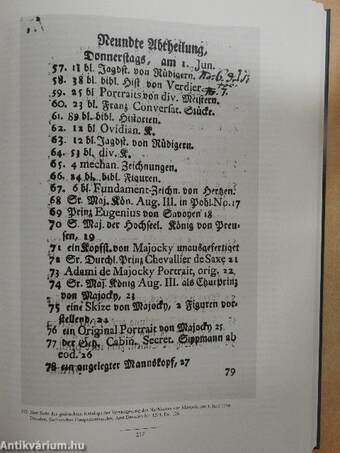 Neundte Abtheilung,
Donnerstags, am 1. Jun.
57. 11 bl. Jagdst. von Rüdigern.
58. 38 bl. bibl. Hist von Verdier.
59. 25 bl Portraits von div. Meistern.
60. 23 bl. Franz Conversat. Stücke.
61. 89 bl. bibl. Historien.
62. 12 bl Ovidian. K.
63. 12 bl. Jagdst. von Rüdigern.
64. 53 bl. div. K.
65. 4 mechan. Zeichnungen.
66. 24 bl. bibl. Figuren.
67. 6 bl. Fundament-Zeichn. von Hertzen.
68 Sr. Maj. Kön. Aug. III. in Pohl. No. 17
69 Prinz Eugenius von Savoyen 18
70 S. Maj. der Hochseel. König von Preu-
sen, 19
71 ein Kopfst. von Majocky unausgefertiget
72 Sr. Durchl. Prinz Chevallier de Saxe 21
73 Adami de Majocky Portrait, orig. 22
74 Sr. Maj. König Aug. III. als Churprinz
von Majocky, 23
75 eine Skize von Majocky, 2 Figuren vor-
stellend, 24
76 ein Original Portrait von Majocky 25
77 der Geh. Cabin. Secret. Sippmann ab
eod. 26
78 ein angelegter Mannskopf, 27
79
217
Antikvarium.hu
antikvarium.hu